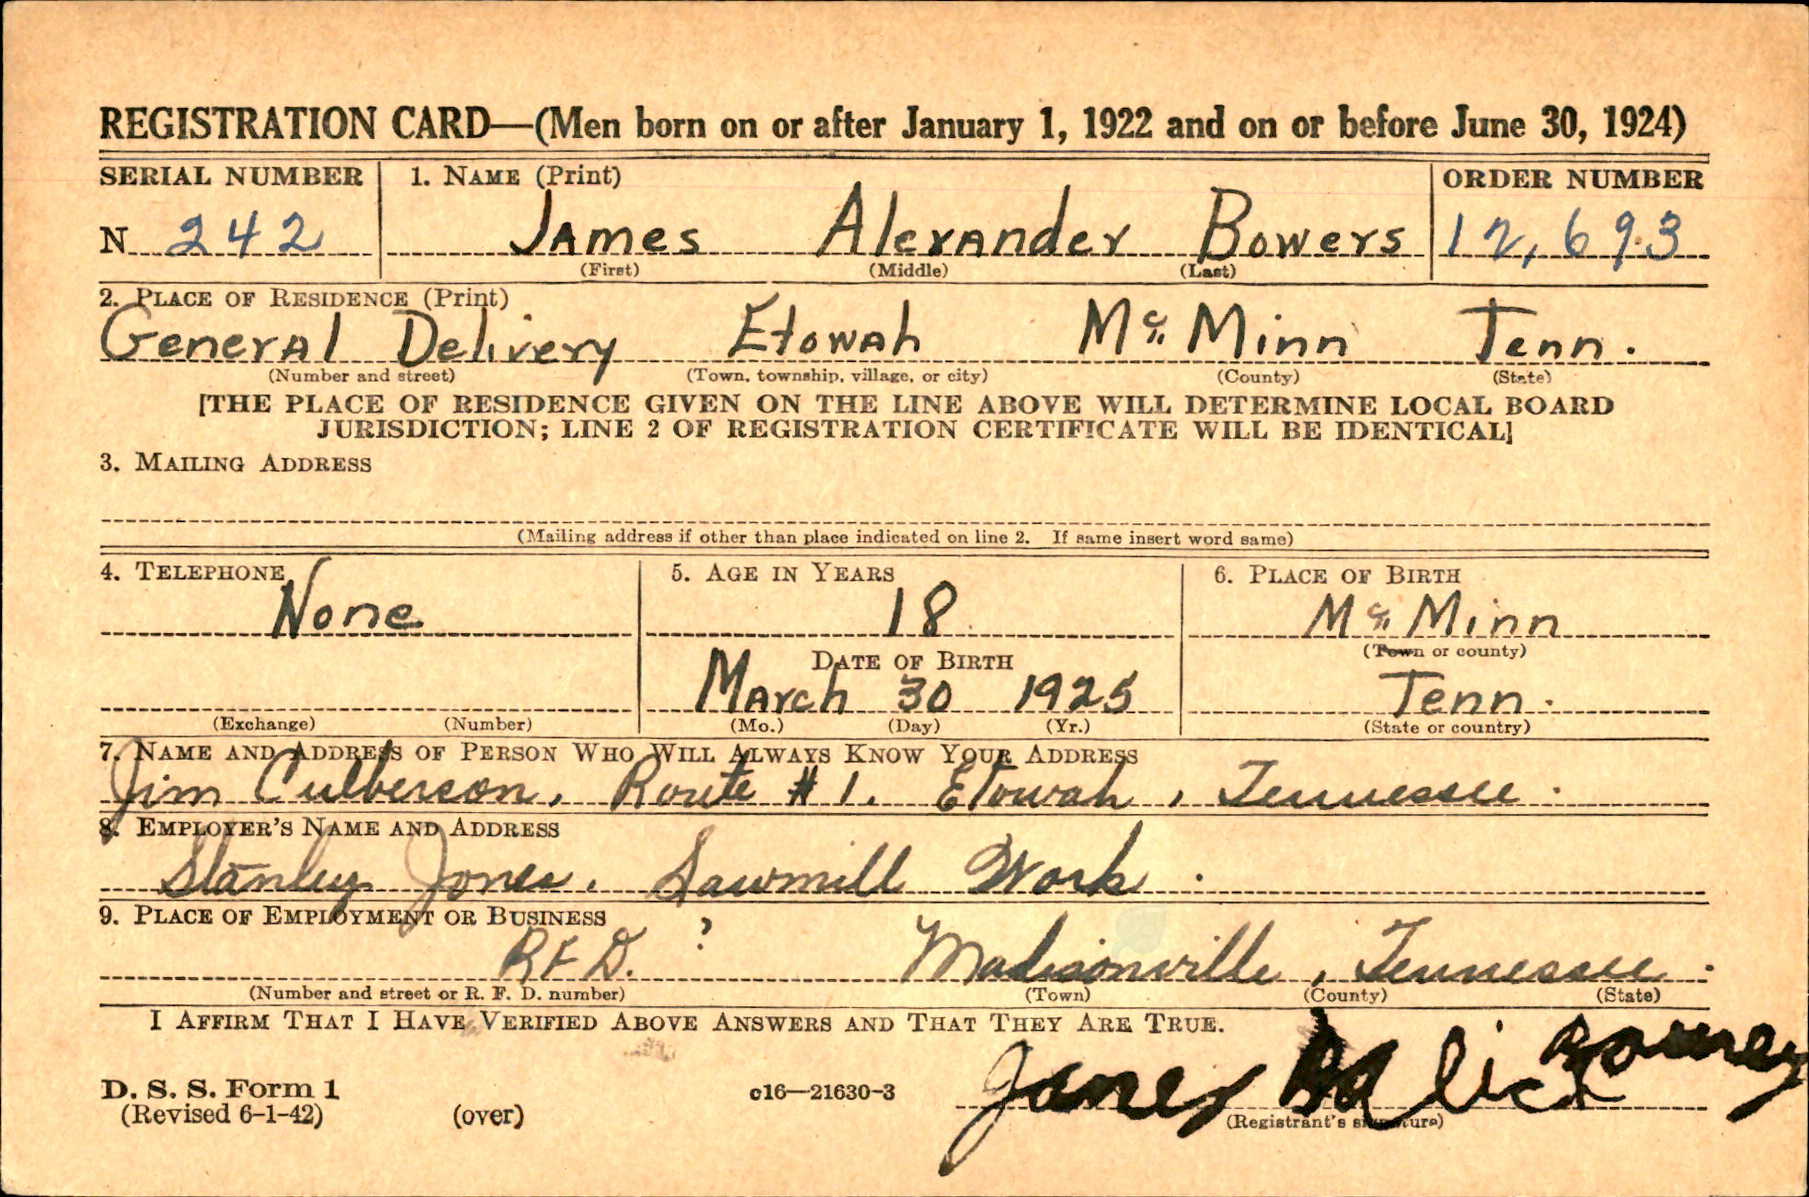 REGISTRATION CARD—(Men born on or after January 1, 1922 and on or before June 30, 1924)
SERIAL NUMBER 1. NAME (Print) ORDER NUMBER
N 242 James Alexander Bowers 12,693
(First) (Middle) (Last)
2. PLACE OF RESIDENCE (Print)
General Delivery Etowah Mc Minn Tenn.
(Number and street) (Town, township, village, or city) (County) (State)
[THE PLACE OF RESIDENCE GIVEN ON THE LINE ABOVE WILL DETERMINE LOCAL BOARD
JURISDICTION; LINE 2 OF REGISTRATION CERTIFICATE WILL BE IDENTICAL]
3. MAILING ADDRESS
(Mailing address if other than place indicated on line 2. If same insert word same)
4. TELEPHONE 5. AGE IN YEARS 6. PLACE OF BIRTH
None 18 Mc Minn
(Town or county)
DATE OF BIRTH
March 30 1925 Tenn.
(Exchange) (Number) (Mo.) (Day) (Yr.) (State or country)
7. NAME AND ADDRESS OF PERSON WHO WILL ALWAYS KNOW YOUR ADDRESS
Jim Culberson, Route # 1. Etowah, Tennessee.
8. EMPLOYER'S NAME AND ADDRESS
Stanley Jones. Sawmill Work.
9. PLACE OF EMPLOYMENT OR BUSINESS
RFD. ? Madisonville, Tennessee.
(Number and street or R. F. D. number) (Town) (County) (State)
I AFFIRM THAT I HAVE VERIFIED ABOVE ANSWERS AND THAT THEY ARE TRUE.
D. S. S. Form 1
(Revised 6-1-42) (over) c16—21630-3
(Registrant's signature)